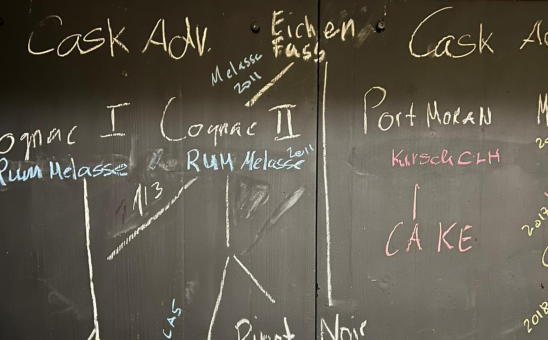 Cask Adv.
Eichen
Fass
Cask Ad
Melasse
2011
ognac I
Cognac II
Port Moran
M
Rum Melasse
RUM Melasse 2011
Kirsch CLH
1/3
CAKE
2017
CAS
Pinot Noir
2018